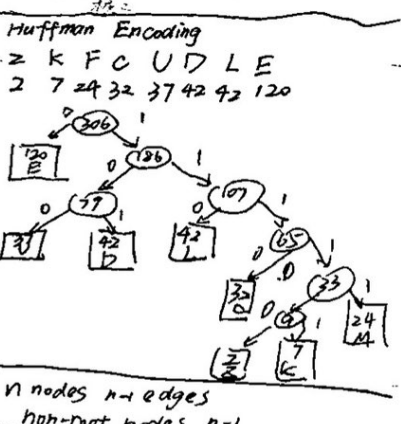 Huffman Encoding
Z K F C U D L E
2 7 24 32 37 42 42 120
0 306 1
120 E
0 186 1
0 79 1
0 107 1
42 D
42 L
0 65 1
32 C
0 33 1
0 9 1
24 M
2 Z
7 K
n nodes n-1 edges
non-root nodes n-1